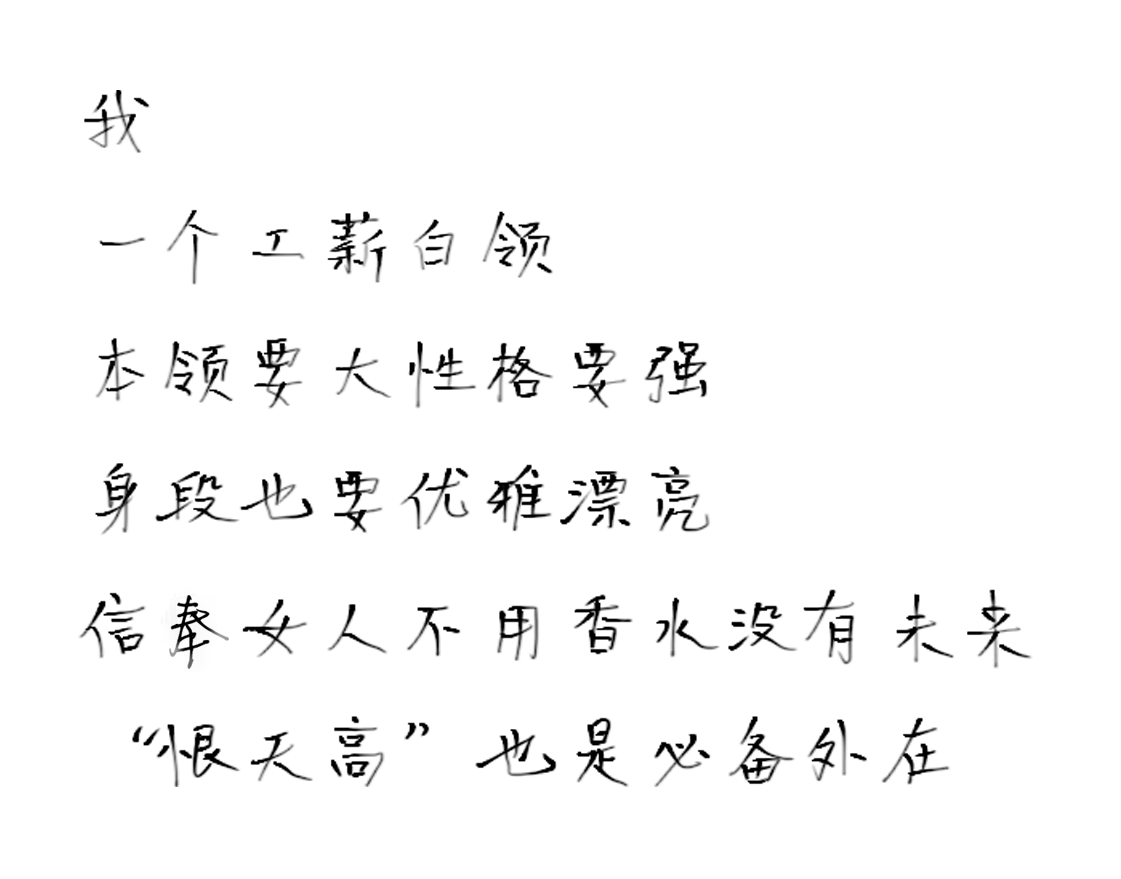 我
一个工薪白领
本领要大性格要强
身段也要优雅漂亮
信奉女人不用香水没有未来
“恨天高”也是必备外在